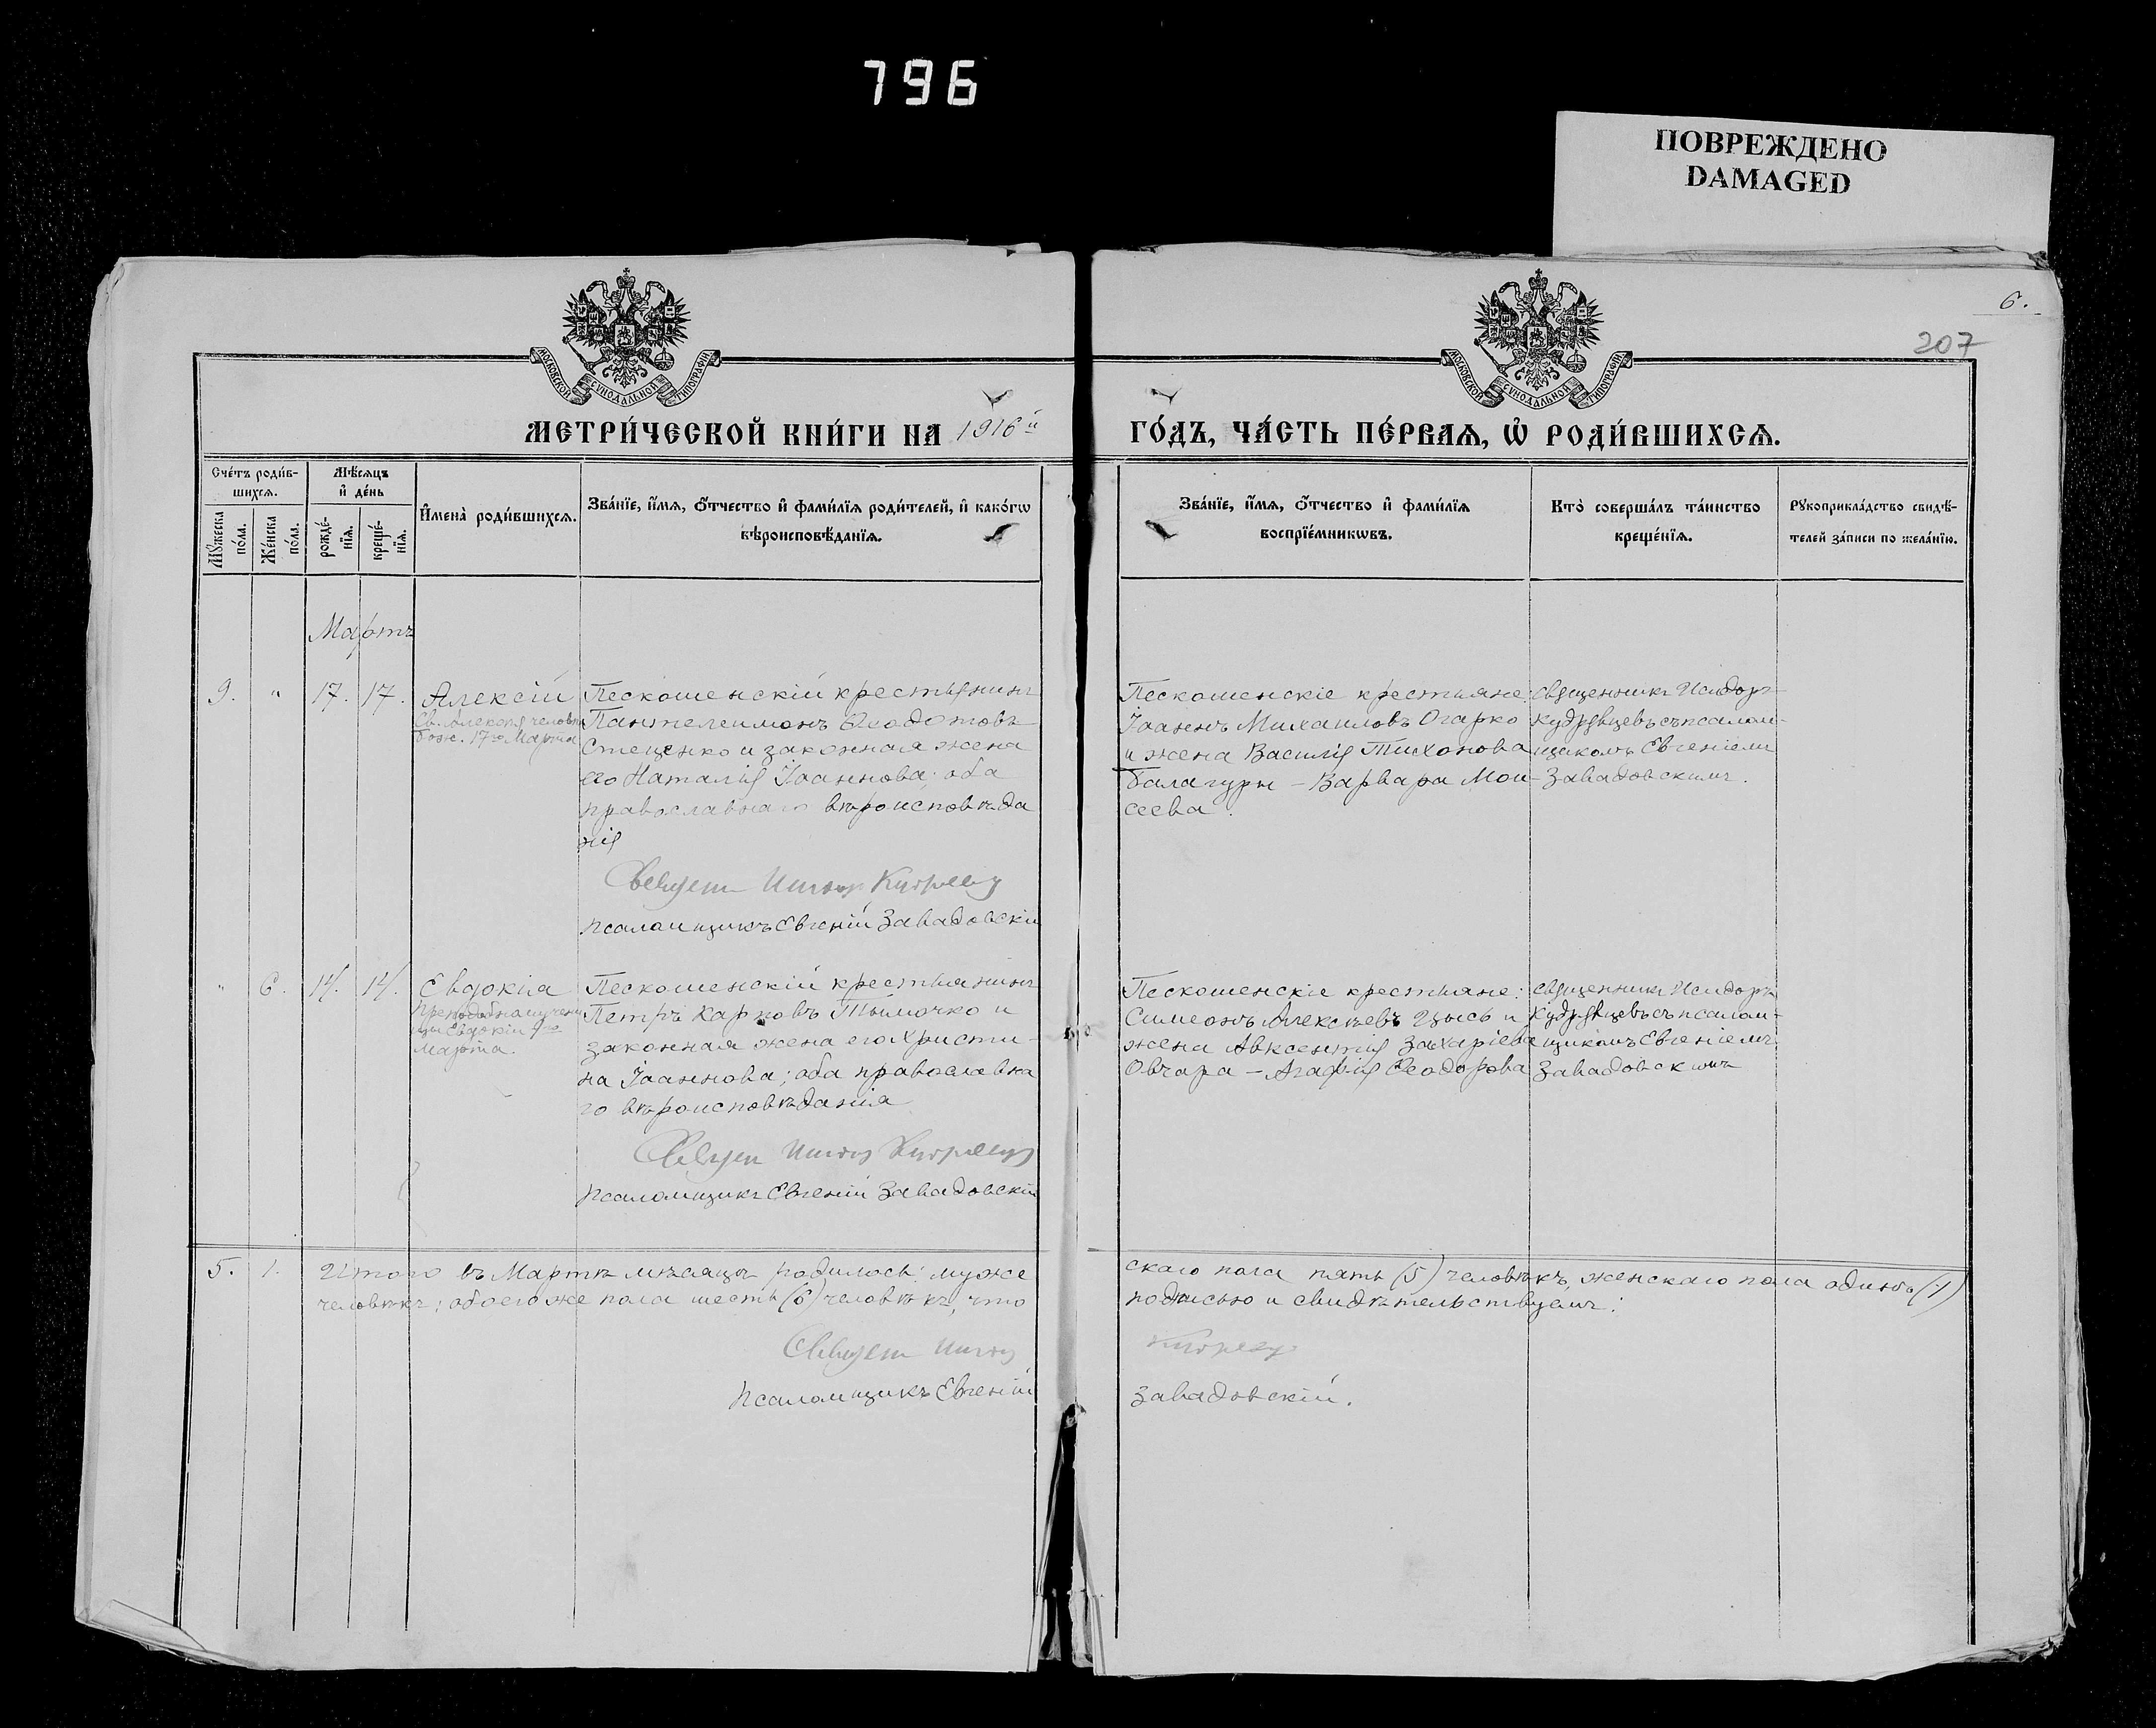 796
ПОВРЕЖДЕНО
DAMAGED
6.
207
МОСКОВСКОЙ СУНОДАЛЬНОЙ ТИПОГРАФІИ
МОСКОВСКОЙ СУНОДАЛЬНОЙ ТИПОГРАФІИ
МЕТРИ́ЧЕСКОЙ КНИ́ГИ НА 1916й
ГО́ДЪ, ЧА́СТЬ ПЕ́РВАЯ, Ѡ҆ РОДИ́ВШИХСЯ.
Сче́тъ роди́в-
шихся.
Мꙋ́жеска
по́ла.
Же́нска
по́ла.
Мѣ́сяцъ
и҆ де́нь
рожде́-
нїя.
креще́-
нїя.
И҆мена̀ роди́вшихся.
Зва́нїе, и҆́мя, ѻ҆́тчество и҆ фами́лїя роди́телей, и҆ како́гѡ
вѣроисповѣ́данїя.
Зва́нїе, и҆́мя, ѻ҆́тчество и҆ фами́лїя
воспрїе́мникѡвъ.
Кто̀ соверша́лъ та́инство
креще́нїя.
Рꙋкоприкла́дство свидѣ́-
телей за́писи по жела́нїю.
Мартъ
9.
"
17.
17.
Алексій
Св. Алексія человѣка
Бож. 17го Марта
Пескошенскій крестьянинъ
Пантелеимонъ Ѳеодотовъ
Стеценко и законная жена
его Наталія Іоаннова; оба
православнаго вѣроисповѣда
нія
Псаломщикъ Евгеній Завадовскій
Пескошенскіе крестьяне:
Іоаннъ Михаиловъ Огарко
и жена Василія Тихонова
Балагуры - Варвара Мои-
сеева.
Священникъ Исидоръ
Кудрявцевъ съ псалом-
щикомъ Евгеніемъ
Завадовскимъ.
"
6.
14.
14.
Евдокія
Преподобномучени
цы Евдокіи
Марта.
Пескошенскій крестьянинъ
Петръ Карповъ Тымочко и
законная жена его Христи-
на Іоаннова; оба православна
го вѣроисповѣданія
Псаломщикъ Евгеній Завадовскій
Пескошенскіе крестьяне:
Симеонъ Алексѣевъ Цысь и
жена Авксентія Захаріева
Овчара - Агафія Ѳеодорова
Священникъ Исидоръ
Кудрявцевъ съ псалом-
щикомъ Евгеніемъ
Завадовскимъ
5.
1.
Итого въ Мартѣ мѣсяцѣ родилось: муже
скаго пола пять (5) человѣкъ, женскаго пола одинъ (1)
человѣкъ; обоего же пола шесть (6) человѣкъ, что
подписью и свидѣтельствуемъ:
Псаломщикъ Евгеній
Завадовскій.